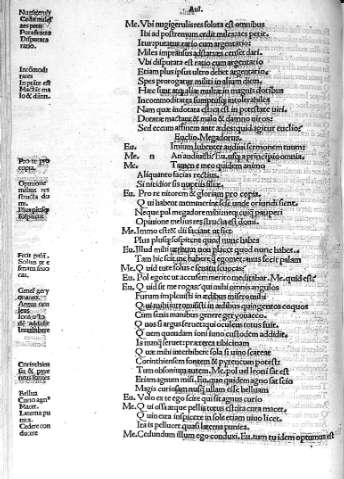 Aul.
Nugigeruli
Cedit miles
aes petit
Putatur ra
Disputata
ratio.
Me. Vbi nugigerulis res soluta est omnibus
Ibi ad postremum cedit miles aes petit.
Itur putatur ratio cum argentario:
Miles impransus adstat aes censet dari.
Vbi disputata est ratio cum argentario
Etiam plus ipsus ultro debet argentario.
Spes prorogatur militi in alium diem.
Haec sunt atque aliae multae in magnis dotibus
Incommoditates sumptusque intolerabiles
Nam quae indotata est ea est in potestate uiri.
Dotatae mactant & malo & damno uiros:
Sed eccum affinem ante aedes: quid agitur euclio?
Incommodi
tates
Euclio. Megadorus.
Eu. Nimium lubenter audiui sermonem tuum:
Me. n An audiuisti? Eu. usque a principio omnia.
Me. Tamen e meo quidem animo
Aliquanto facias rectius,
Si nitidior sis nuptiis filiae.
Eu. Pro re nitorem & gloriam pro copia.
Qui habent meminerint sese unde oriundi sient.
Neque pol megadore mihi neque cuiquam pauperi
Opinione melius res structa est domi.
Pro re pro
copia.
Opinione
melius res
structa do
mi.
Me. Immo est & dii faciant ut siet
Plus plusque sospitent quod nunc habes
Eu. Illud mihi uerbum non placet quod nunc habes.
Tam hic scit me habere quam egomet: anus fecit palam
Me. Quid tute solus e senatu seuocas?
Eu. Pol ego te ut accusem merito meditabar. Me. quid est?
Eu. Quid sit me rogas? qui mihi omnis angulos
Furum impleuisti in aedibus misero mihi
Qui mihi intromisisti in aedibus quingentos coquos
Cum senis manibus genere geryonaceo.
Quos si argus seruet qui oculeus totus fuit.
Quem quondam ioni iuno custodem addidit.
Is nunquam seruet: praeterea tibicinam
Quae mihi interbibere sola si uino scateat
Corinthiensem fontem & pyreneum potest:
Tum obsonium autem. Me. pol uel legioni sat est
Etiam agnum misi. Eu. quo quidem agno sat scio
Magis curiosam nusquam esse belluam
Eu. Volo ex te ego scire qui sit agnus curio
Me. Qui ossa atque pellis totus est ita cura macet.
Quin exta inspicere in sole etiam uiuo licet.
Ita is pellucet quasi laterna punica.
Me. Cedundum illum ego conduxi. Eu. tum tu idem optimum est
Fecit palam
Solus e se
natu seuo
cas.
Bellua
Macet.
Laterna pu
nica.